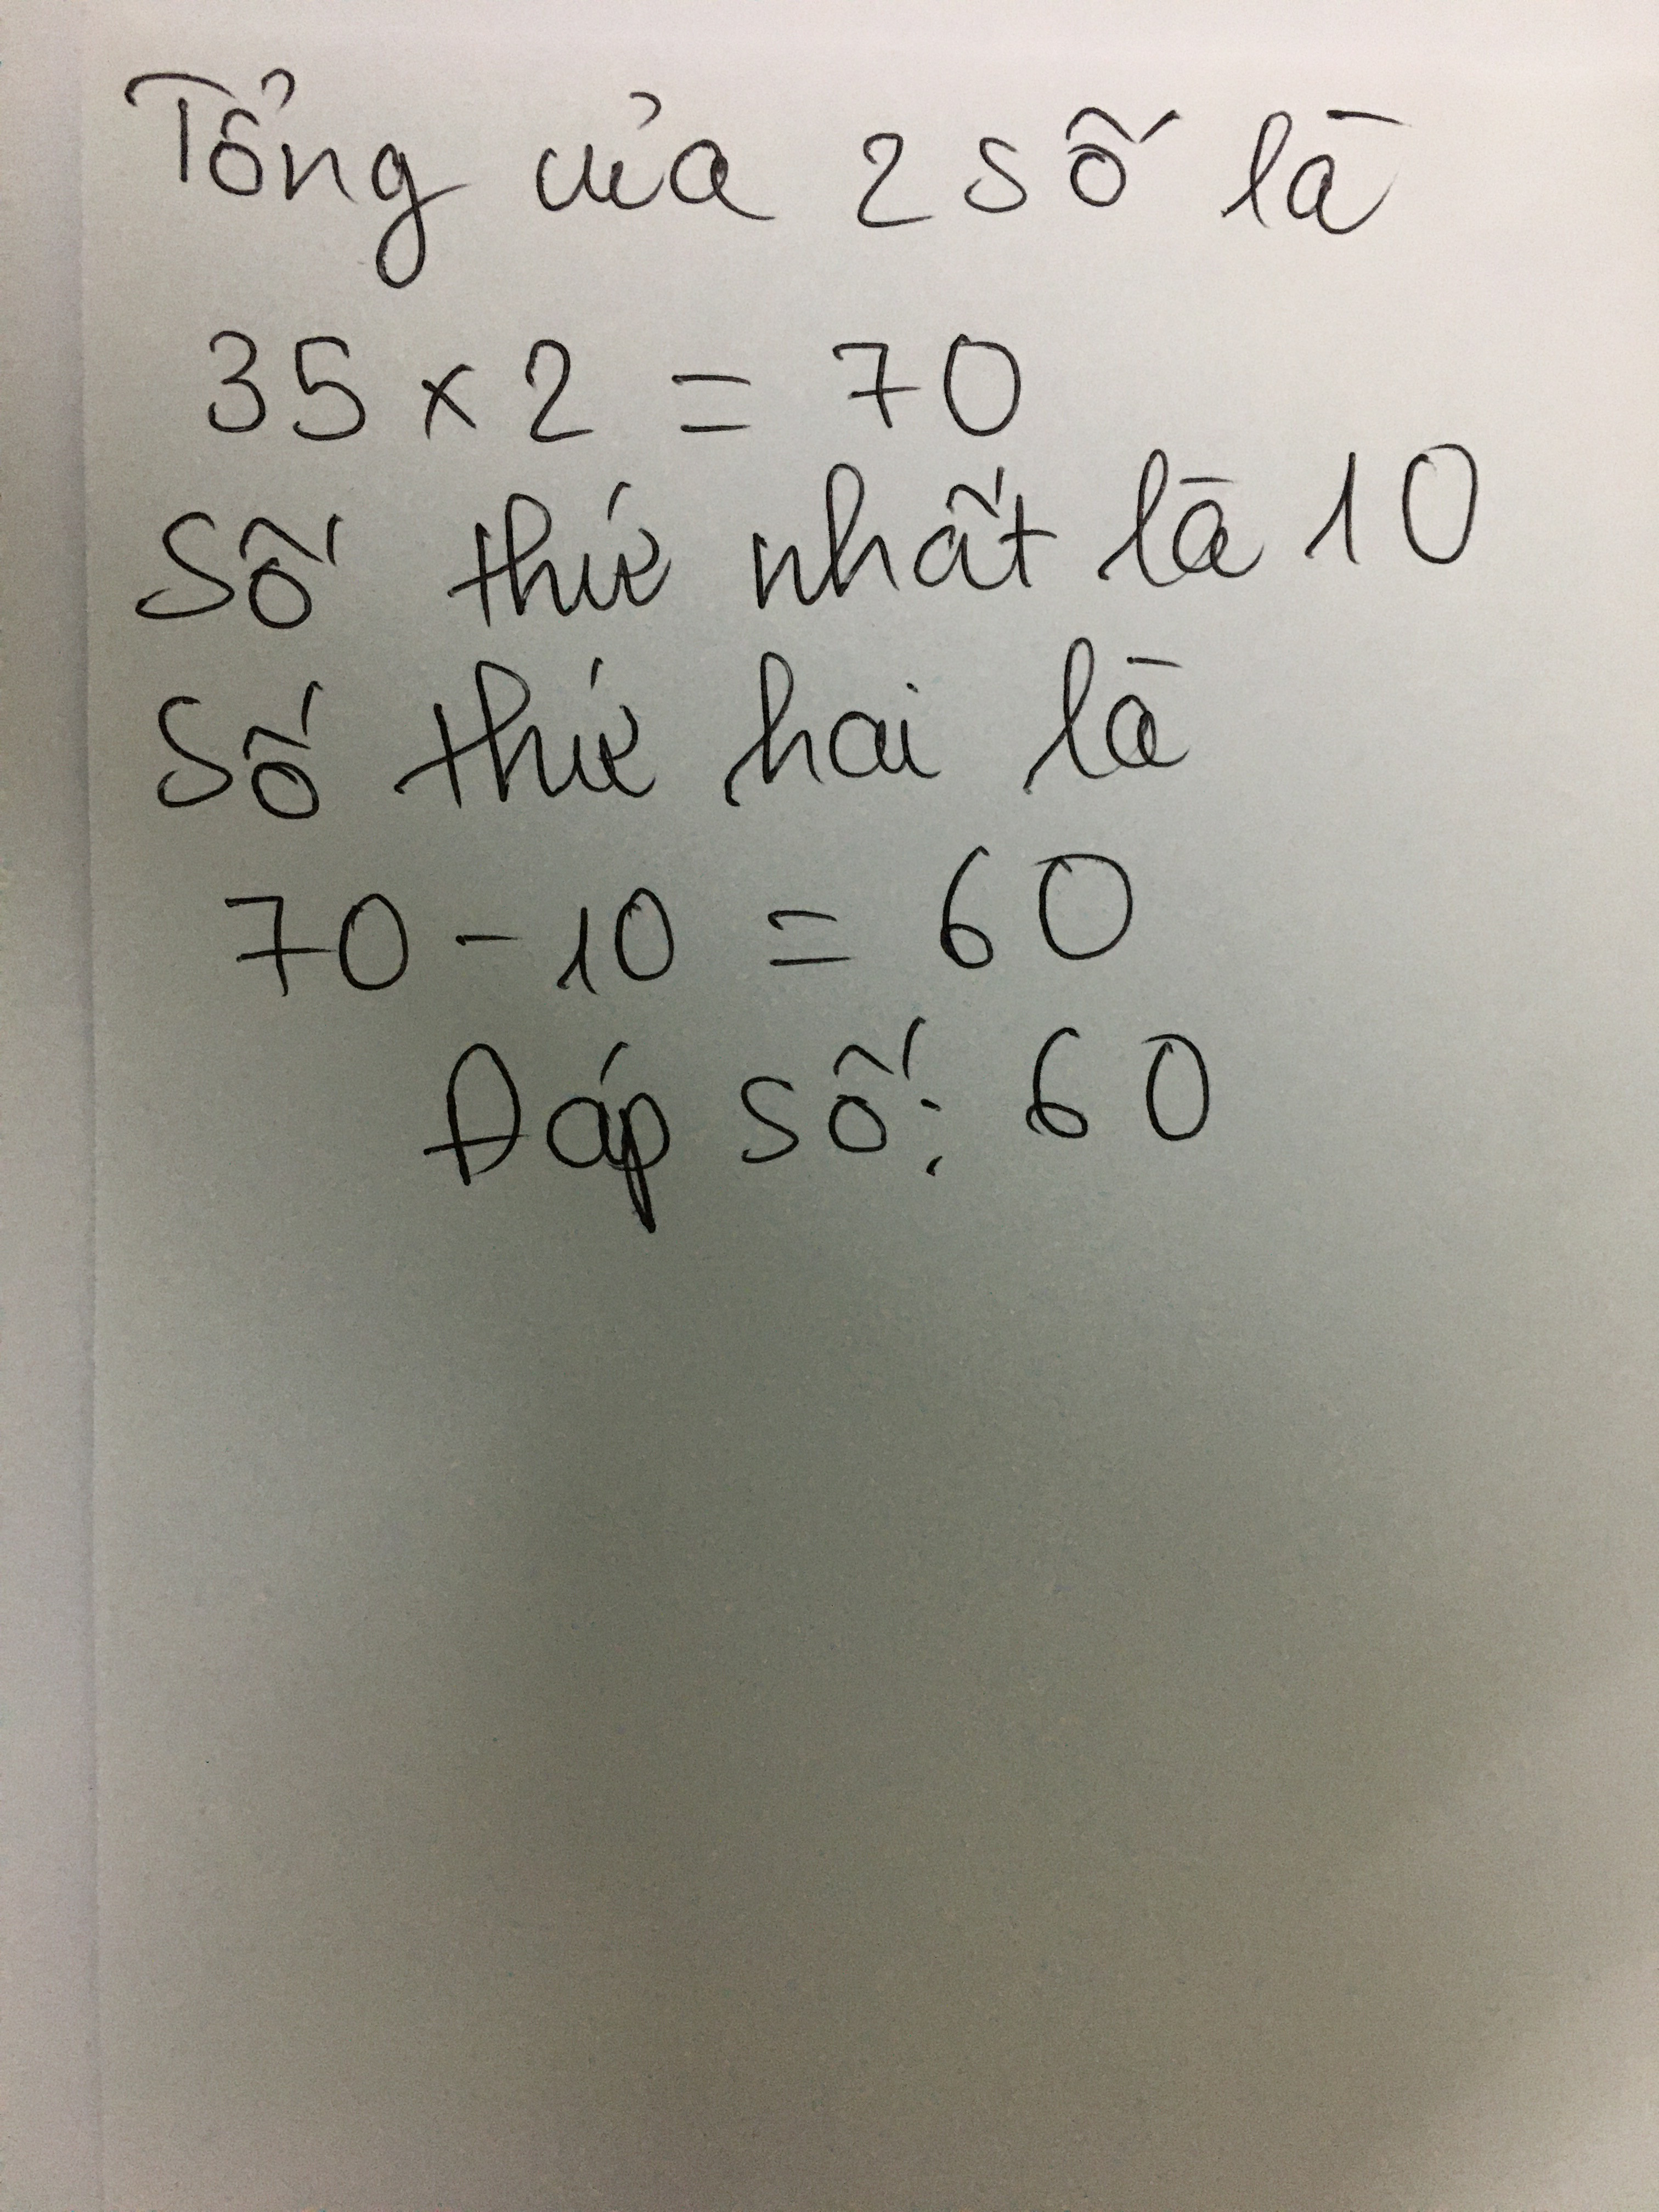 Tổng của 2 số là
35 x 2 = 70
Số thứ nhất là 10
Số thứ hai là
70 - 10 = 60
Đáp số: 60